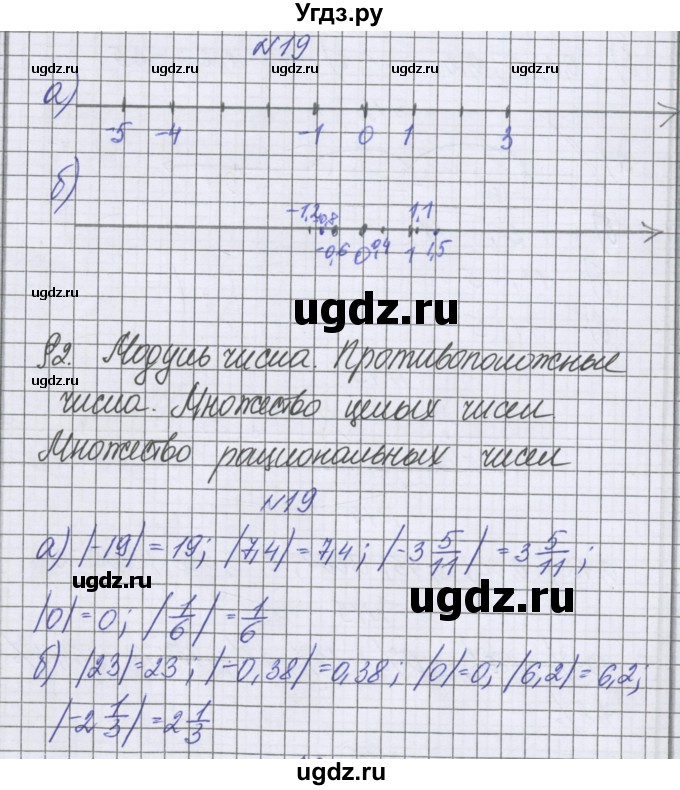 Угдз.ру
№19
ugdz.ru ugdz.ru ugdz.ru ugdz.ru
а)
-5 -4 -1 0 1 3
б)
-1,2 -0,8 1,1
-0,6 0 0,4 1 1,5
ugdz.ru ugdz.ru ugdz.ru
ugdz.ru
§2. Модуль числа. Противоположные
числа. Множество целых чисел.
Множество рациональных чисел
№19
а) |-19| = 19; |7,4| = 7,4; |-3 5/11| = 3 5/11;
ugdz.ru ugdz.ru
|0| = 0; |1/6| = 1/6
б) |23| = 23; |-0,38| = 0,38; |0| = 0; |6,2| = 6,2;
ugdz.ru ugdz.ru ugdz.ru
|-2 1/3| = 2 1/3
ugdz.ru